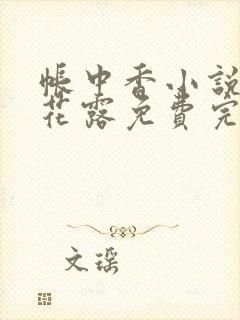 帳中香小說
花露免費完
文琛